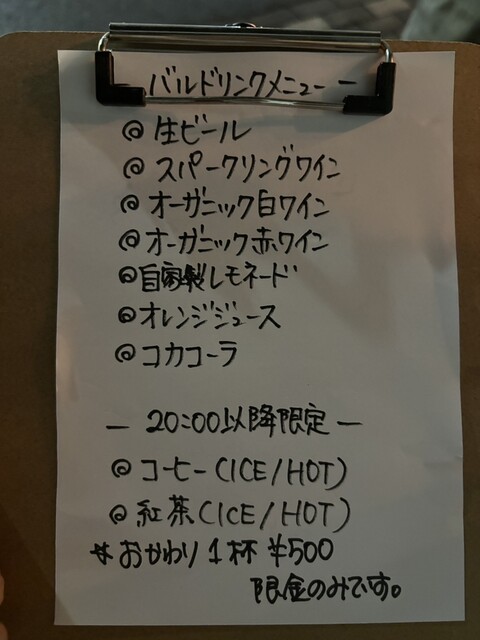 バルドリンクメニュー
◎ 生ビール
◎ スパークリングワイン
◎ オーガニック白ワイン
◎ オーガニック赤ワイン
◎ 自家製レモネード
◎ オレンジジュース
◎ コカコーラ
— 20:00以降限定 —
◎ コーヒー(ICE/HOT)
◎ 紅茶(ICE/HOT)
* おかわり1杯 ¥500
限金のみです。